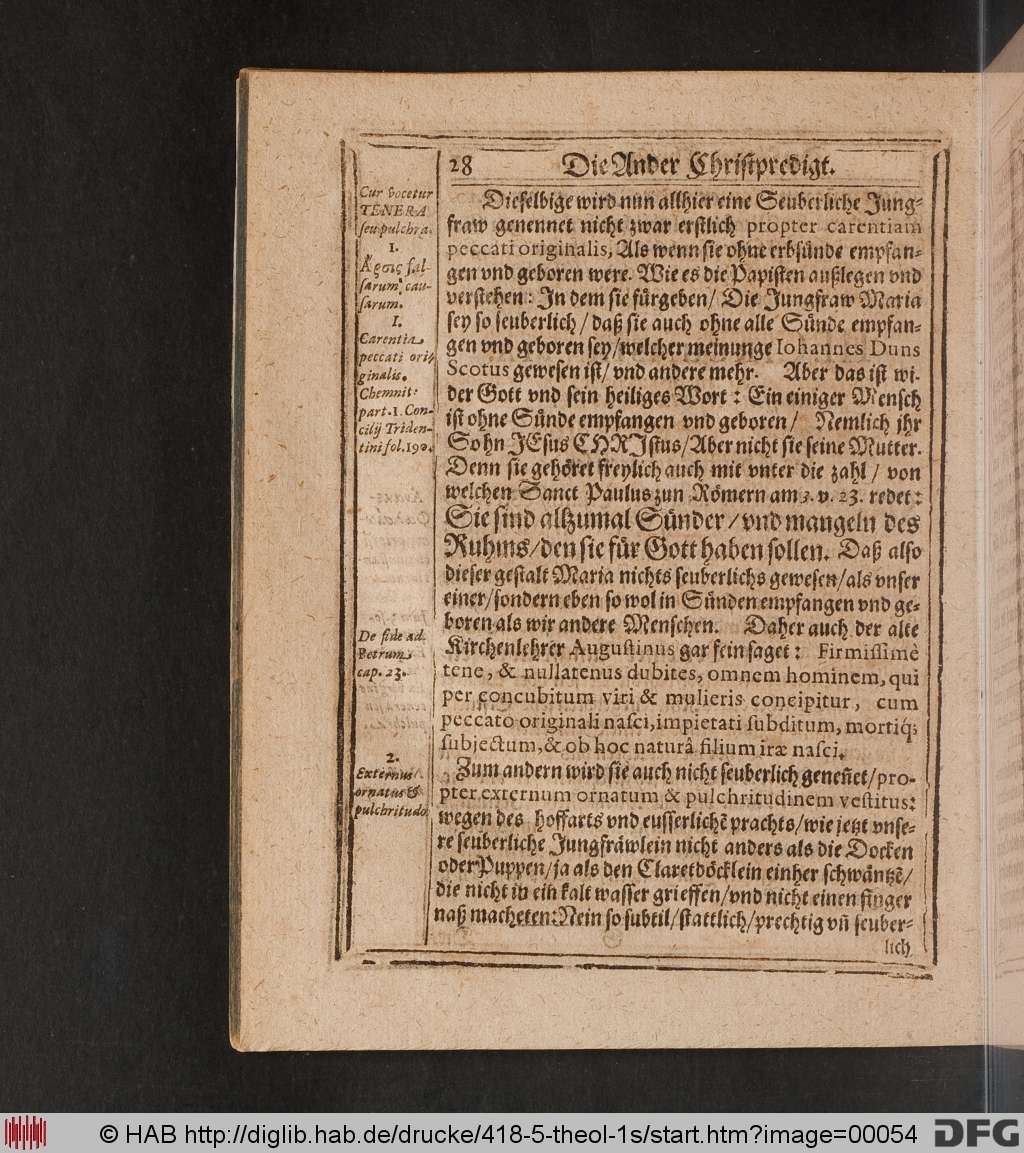 28 Die Ander Christpredigt.
Cur vocetur
TENERA
seu pulchra.
1.
Ἄρσις fal-
sarum cau-
sarum.
1.
Carentia
peccati ori-
ginalis.
Chemnit:
part. 1. Con-
cilij Triden-
tini fol.
De fide ad
Petrum
cap. 23.
2.
Externus
ornatus &
pulchritudo
Dieselbige wird nun allhier eine Seuberliche Jung-
fraw genennet nicht zwar erstlich propter carentiam
peccati originalis, Als wenn sie ohne erbsünde empfan-
gen vnd geboren were. Wie es die Papisten außlegen vnd
verstehen: In dem sie fürgeben/ Die Jungfraw Maria
sey so seuberlich/ daß sie auch ohne alle Sünde empfan-
gen vnd geboren sey/welcher meinunge Iohannes Duns
Scotus gewesen ist/ vnd andere mehr. Aber das ist wi-
der Gott vnd sein heiliges Wort: Ein einiger Mensch
ist ohne Sünde empfangen vnd geboren/ Nemlich jhr
Sohn JEsus CHRJstus/Aber nicht sie seine Mutter.
Denn sie gehöret freylich auch mit vnter die zahl/ von
welchen Sanct Paulus zun Römern am 3. v. 23. redet:
Sie sind allzumal Sünder/vnd mangeln des
Ruhms/den sie für Gott haben sollen. Daß also
dieser gestalt Maria nichts seuberlichs gewesen/als vnser
einer/sondern eben so wol in Sünden empfangen vnd ge-
boren als wir andere Menschen. Daher auch der alte
Kirchenlehrer Augustinus gar fein saget: Firmissimè
tene, & nullatenus dubites, omnem hominem, qui
per concubitum viri & mulieris concipitur, cum
peccato originali nasci, impietati subditum, mortiq́;
subjectum, & ob hoc naturâ filium iræ nasci.
Zum andern wird sie auch nicht seuberlich geneñet/pro-
pter externum ornatum & pulchritudinem vestitus:
wegen des hoffarts vnd eusserlichẽ prachts/wie jetzt vnse-
re seuberliche Jungfräwlein nicht anders als die Docken
oder Puppen/ja als den Claretdöcklein einher schwäntzẽ/
die nicht in ein kalt wasser grieffen/vnd nicht einen finger
naß macheten: Nein so subtil/stattlich/prechtig vñ seuber-
lich
© HAB http://diglib.hab.de/drucke/418-5-theol-1s/start.htm?image=00054
DFG